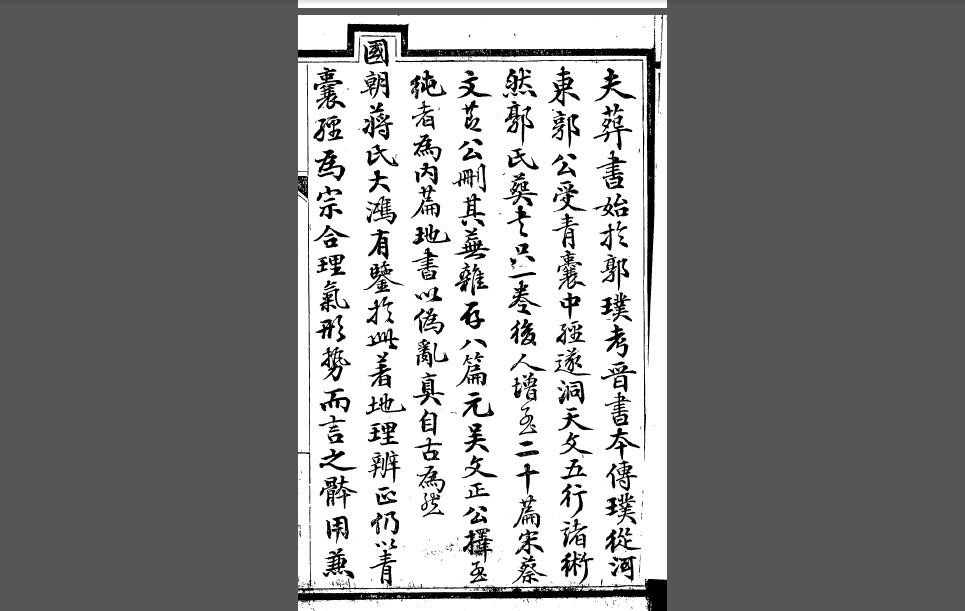 夫葬書始於郭璞考晉書夲傳璞從河
東郭公受青囊中經遂洞天文五行諸術
然郭氏葬书只一卷後人增至二十篇宋蔡
文莭公刪其蕪雜存八篇元吴文正公擇至
純者為内篇地書以偽亂真自古為然
國朝蔣氏大鴻有鑒於此着地理辨正仍以青
囊經為宗合理氣形勢而言之骵用兼